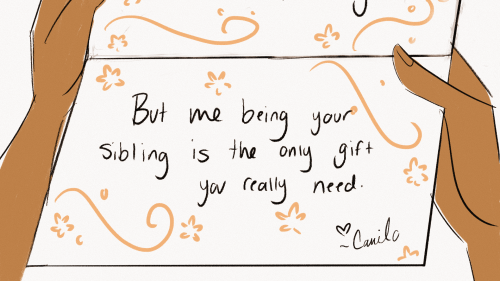 But me being your
sibling is the only gift
you really need.
~Camilo